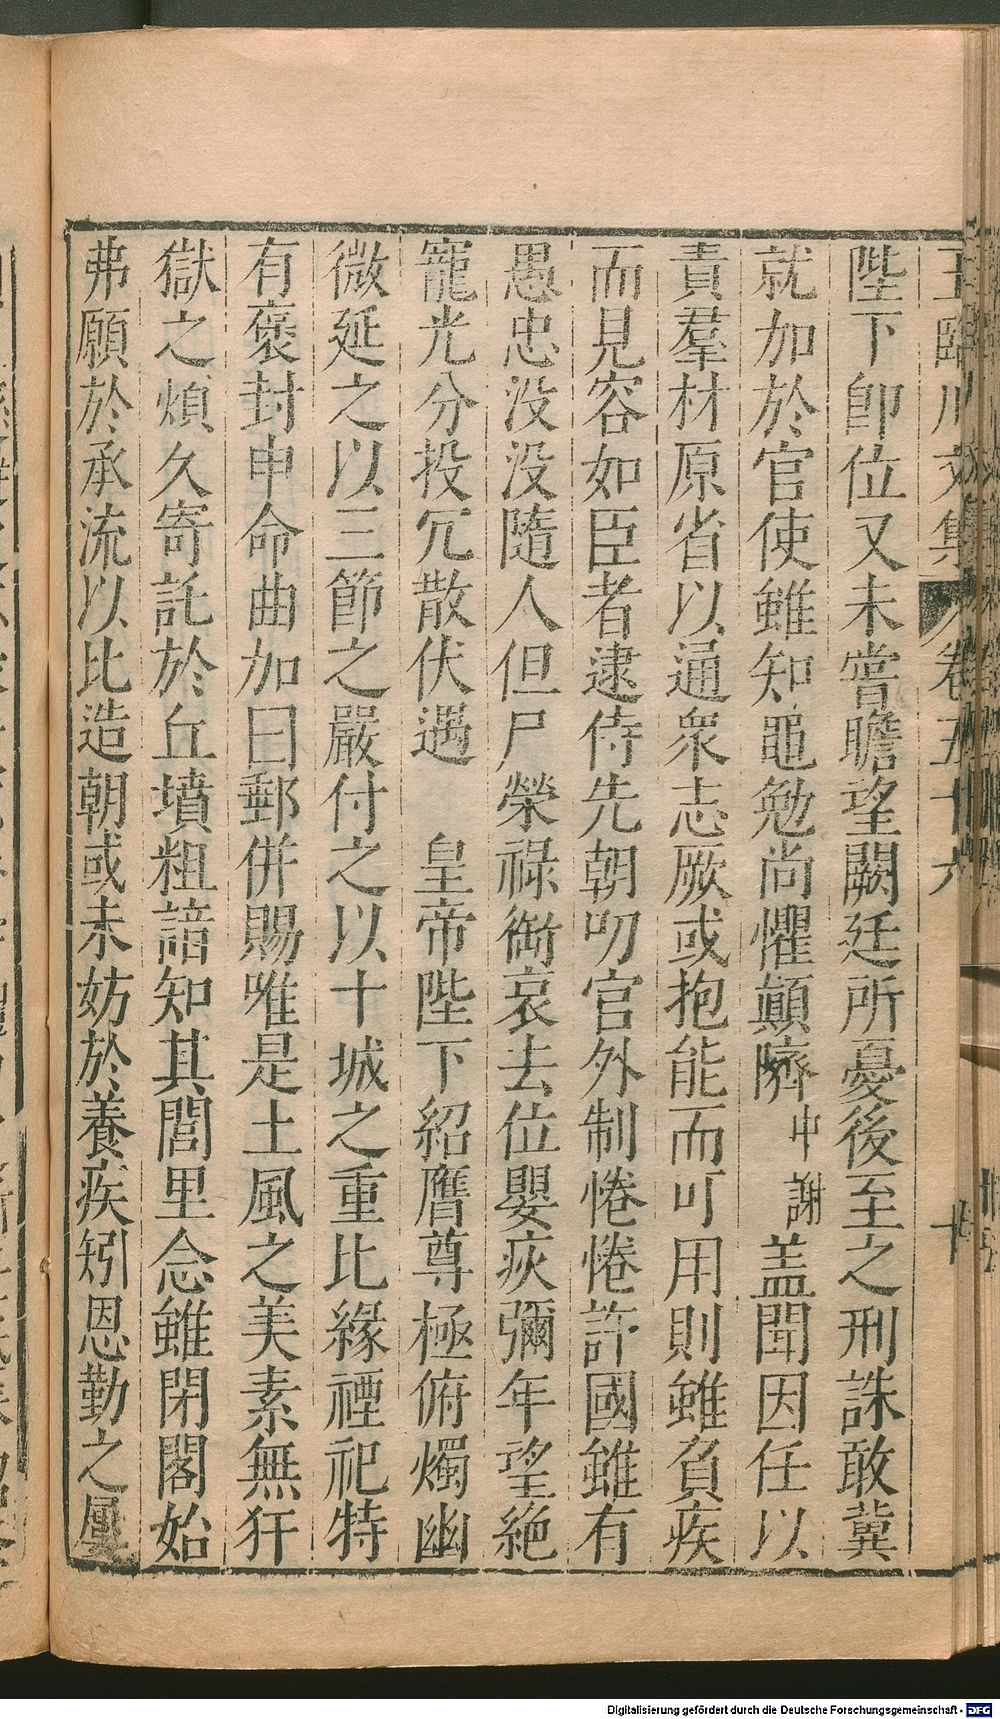 王臨川文集 卷五十六 十
陛下卽位又未嘗瞻望闕廷所憂後至之刑誅敢冀
就加於官使雖知黽勉尚懼顛隮中謝盖聞因任以
責羣材原省以通衆志厥或抱能而可用則雖負疾
而見容如臣者逮侍先朝叨官外制惓惓許國雖有
愚忠没没隨人但尸榮祿銜哀去位嬰疢彌年望絶
寵光分投冗散伏遇 皇帝陛下紹膺尊極俯燭幽
微延之以三節之嚴付之以十城之重比緣禋祀特
有褒封申命曲加曰郵併賜唯是土風之美素無犴
獄之煩久寄託於丘墳粗諳知其閭里念雖閉閤始
弗願於承流以比造朝或未妨於養疾矧恩勤之屢
Digitalisierung gefördert durch die Deutsche Forschungsgemeinschaft - DFG